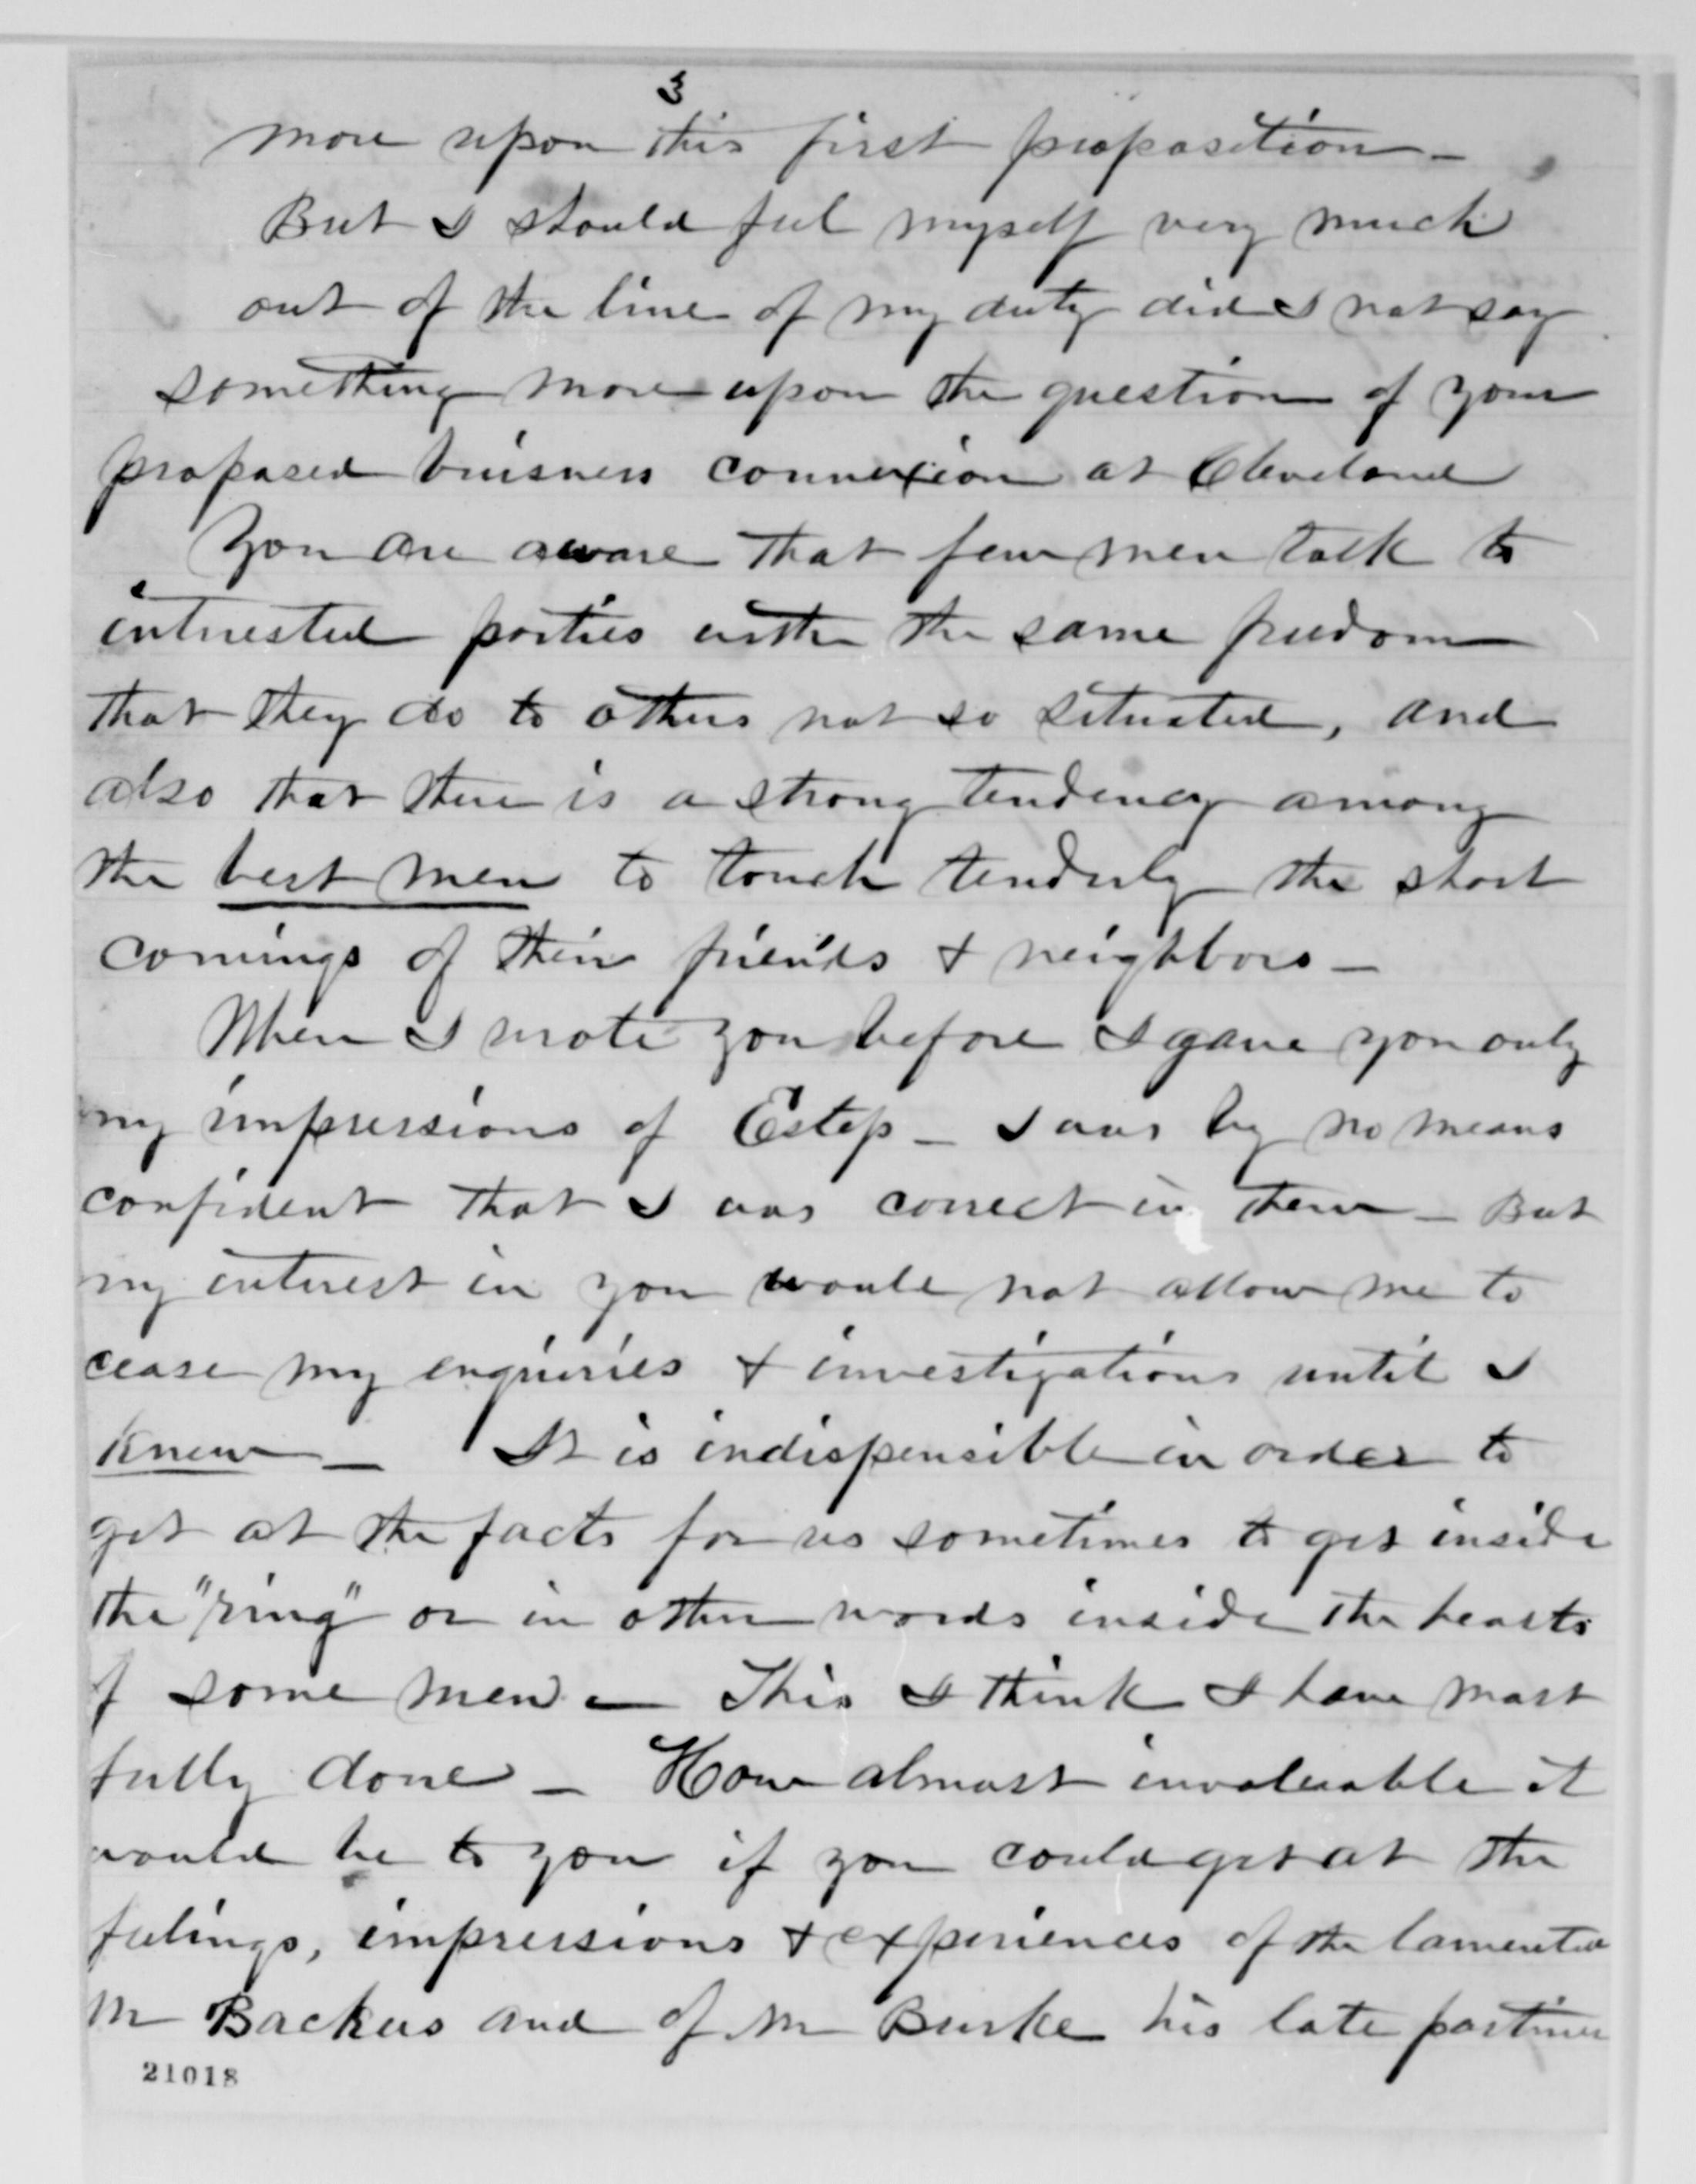 3
more upon this first proposition –
But I should feel myself very much
out of the line of my duty did I not say
something more upon the question of your
proposed buisness connexion at Cleveland
You are aware that few men talk to
interested parties with the same freedom
that they do to others not so situated, and
also that there is a strong tendency among
the best men to touch tenderly the short
comings of their friends & neighbors –
When I wrote you before I gave you only
my impressions of Estep – I was by no means
confident that I was correct in them – But
my interest in you would not allow me to
cease my enquiries & investigations until I
knew – It is indispensible in order to
get at the facts for us sometimes to get inside
the "ring" or in other words inside the hearts
of some men – This I think I have most
fully done – How almost invaluable it
would be to you if you could get at the
feelings, impressions & experiences of the lamented
Mr Backus and of Mr Burke his late partner
21018